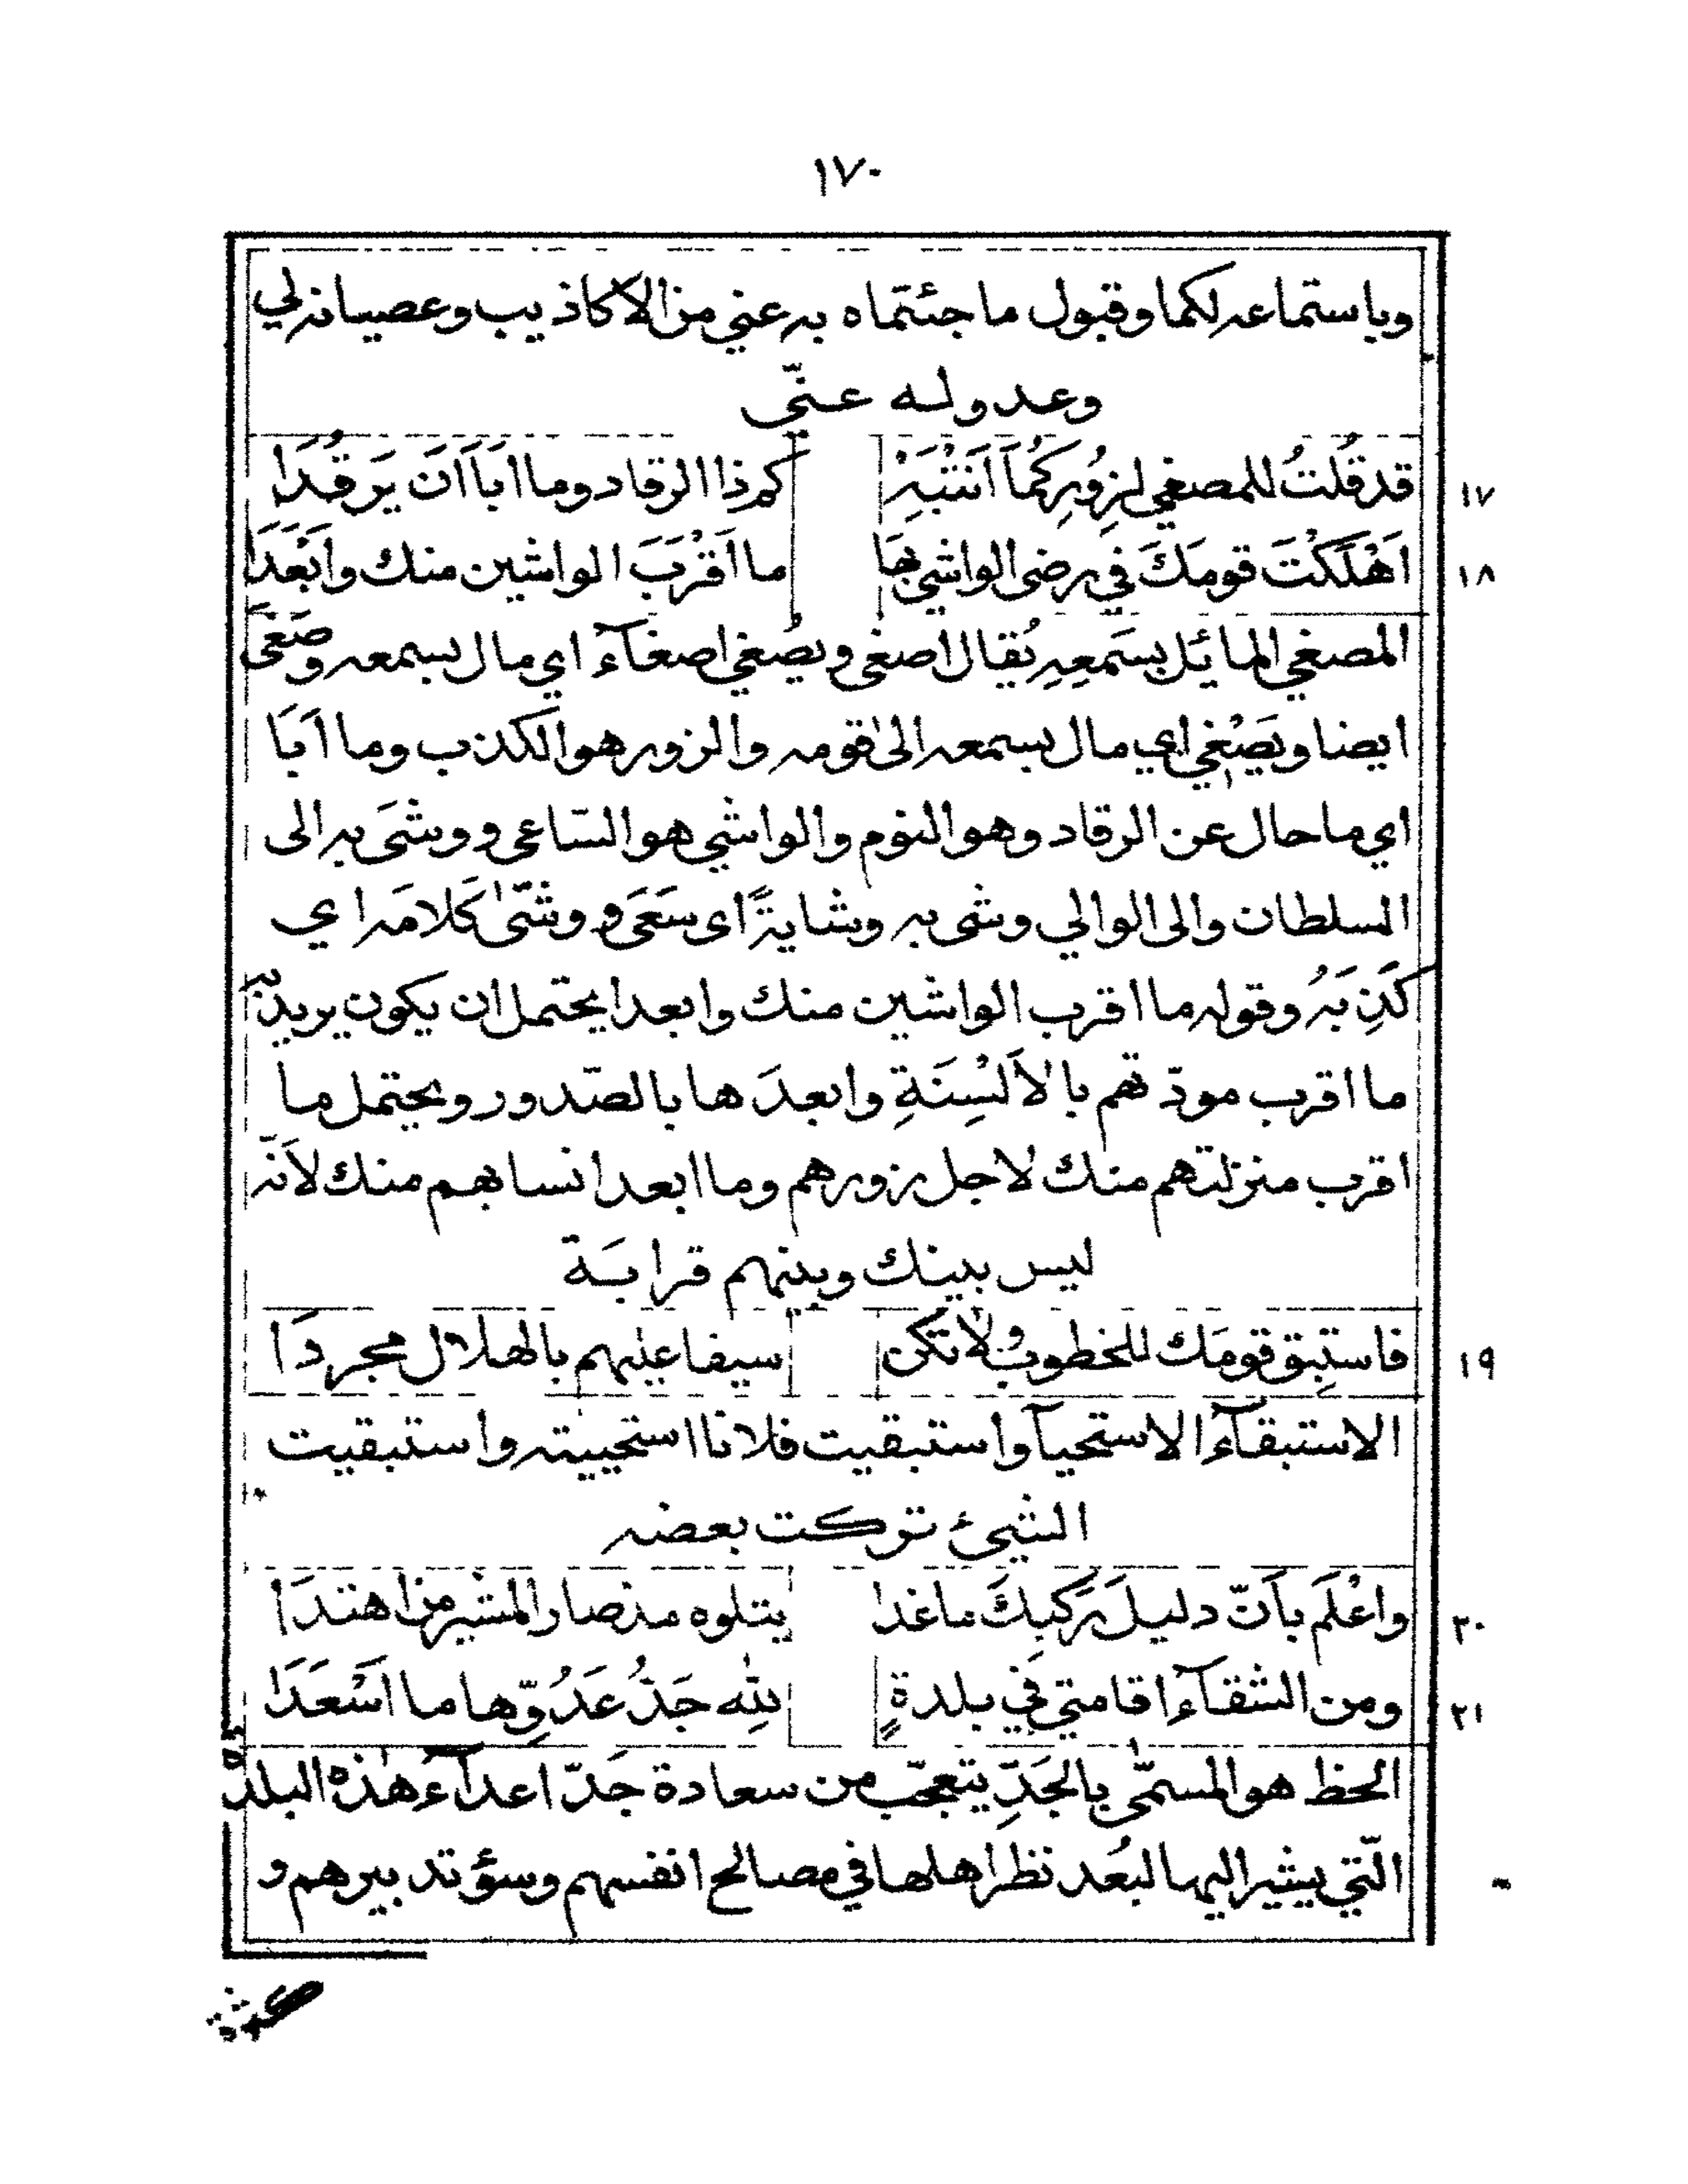 ١٧٠
وباستماعه لكما وقبول ما جئتماه به عني من الاكاذيب وعصيانه لي
وعدوله عنّي
١٧ قد قُلتُ للمصغي لِزُورِكُمآ اَنتَبِهْ كم ذا الرقاد وما اَبَا اَن يَرقُدَا
١٨ اَهْلَكْتَ قومَكَ في رضى الواشي بِهَا ما اَقْرَبَ الواشين منك واَبْعَدَا
المصغي المائل بسَمعِهِ يُقال اصغى ويُصغي اصغآءً اي مال بسمعه وصَغَى
ايضا ويَصْغي اي مال بسمعه الى قومه والزور هو الكذب وما اَبَا
اي ما حال عن الرقاد وهو النوم والواشي هو السّاعي ووشَى به الى
السلطان والى الوالي وشى به وشايةً اى سَعَى و وشّىٰ كَلامَه اي
كَذِبَهُ وقوله ما اقرب الواشين منك وابعدا يحتمل ان يكون يريد به
ما اقرب مودّتهم بالاَلسِنَةِ وابعدَها بالصّدور ويحتمل ما
اقرب منزلتهم منك لاجل زورهم وما ابعد انسابهم منك لاَنّه
ليس بينك وبينهم قرابَة
١٩ فاستبِق قومَك للخطوب ولا تكن سيفا عليهم بالهلال مجردَا
الاستبقآء الاستحيآ واستبقيت فلانا استحييته واستبقيت
الشيئ تركت بعضه
٢٠ واعْلَم باَنّ دليلَ رَكبِكَ ما غدا يتلوه مذ صار المشير من اهتدَا
٢١ ومن الشقآء اقامتي في بلدةٍ لله جَدُّ عَدُوِّها ما اَسْعَدَا
الحظ هو المسمّى بالجَدِّ يتعجّب من سعادة جَدّ اعدآء هٰذه البلدة
الّتي يشير اليها لبُعد نظر اهلها في مصالح انفسهم وسؤ تدبيرهم و